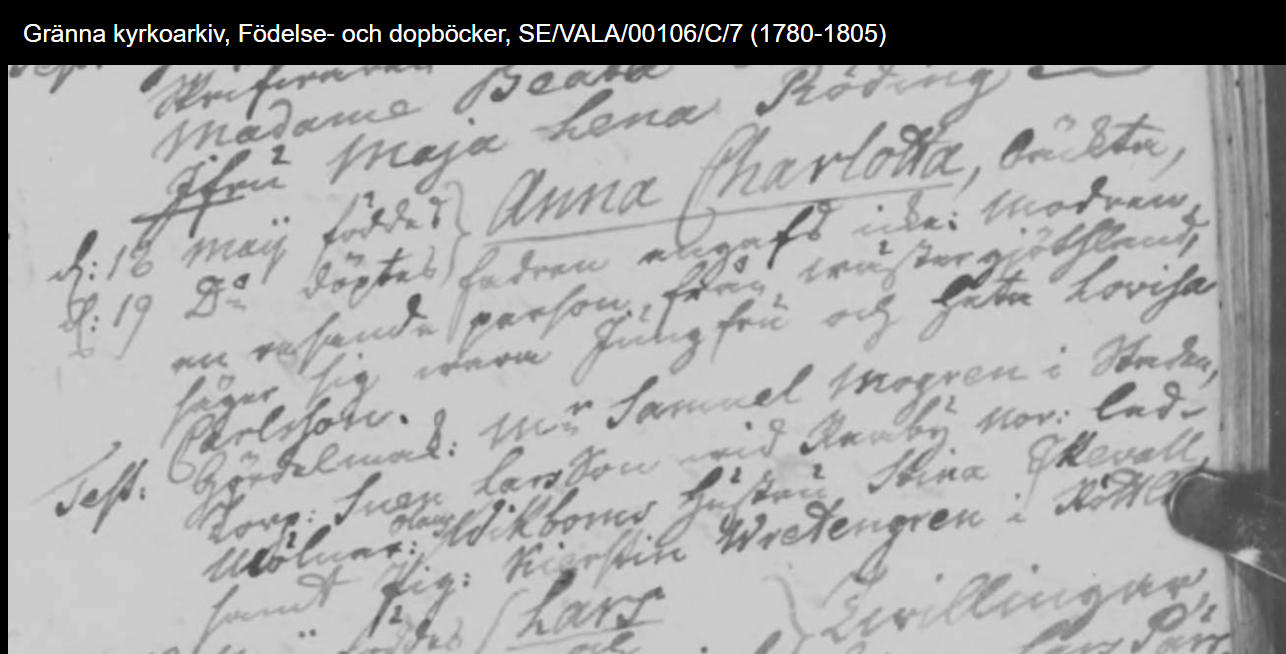 Gränna kyrkoarkiv, Födelse- och dopböcker, SE/VALA/00106/C/7 (1780-1805)
Madame Beata
Jfru Maja Lena Röding
d: 18 Maij föddes } Anna Charlotta, oäckta,
d: 19 Do döptes } fadren angafs icke: Modren,
en resande person från Wästergjöthland,
säger sig wara Jungfru och heta Lovisa
Carlsson.
Test: Gördelmak: Mr Samuel Mogren i Staden,
Corp: Swen Larsson wid Kraby Nor:
Mölnar: Olaus Wikboms hustru Stina Skevall,
samt Pig: Kierstin Wretengren i Röttle
föddes Lars } Zwillingar,